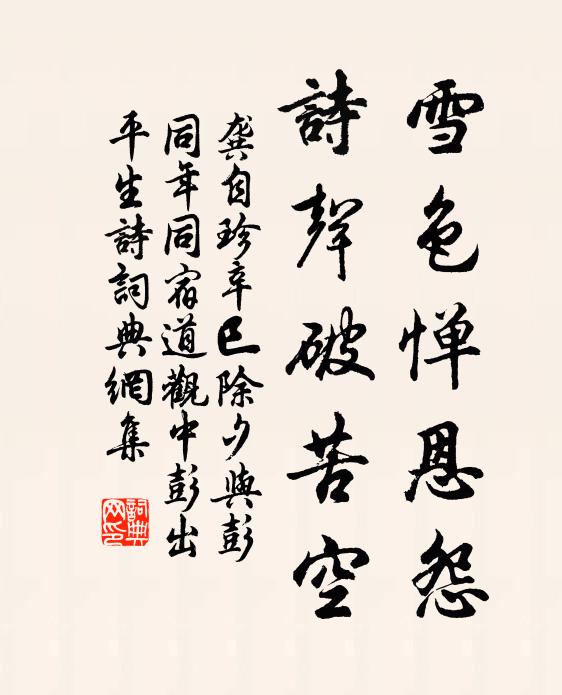 雪色惮恩怨
詩聲破苦空
龔自珍辛巳除夕與彭
同年同宿道觀中彭出
平生詩詞典網集
詞典网印